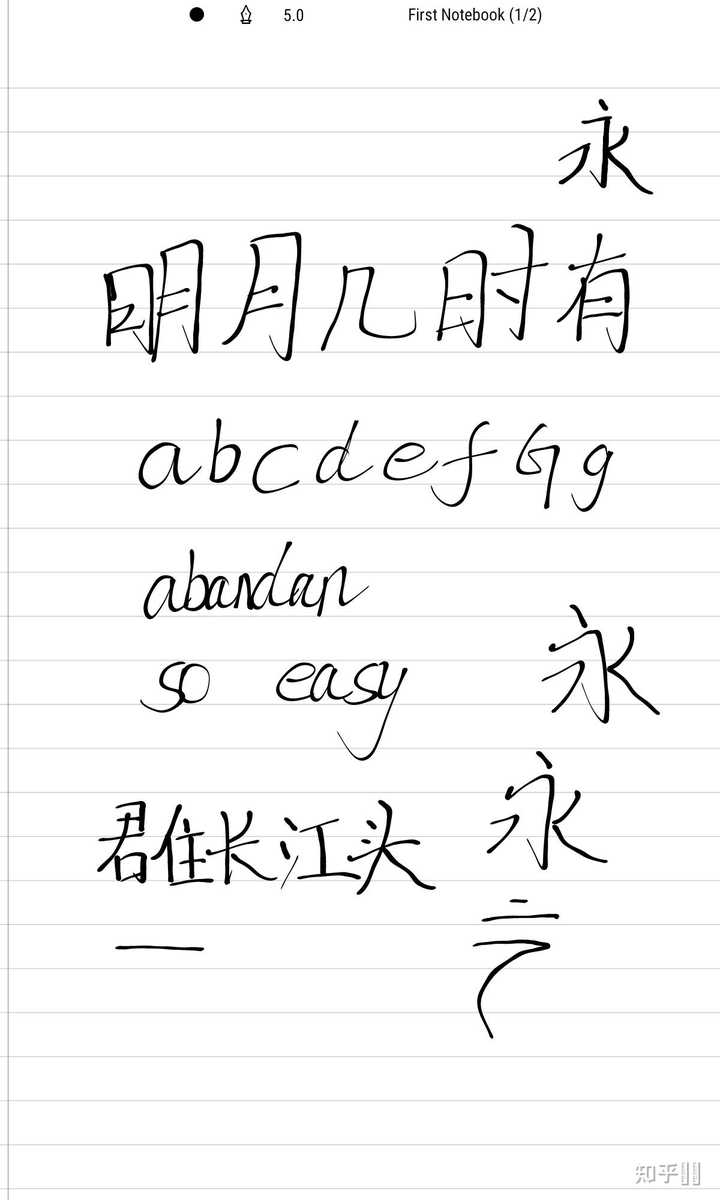 5.0 First Notebook (1/2)
永
明月几时有
abcdefGg
abandan
so easy
永
永
君住长江头
一
知乎